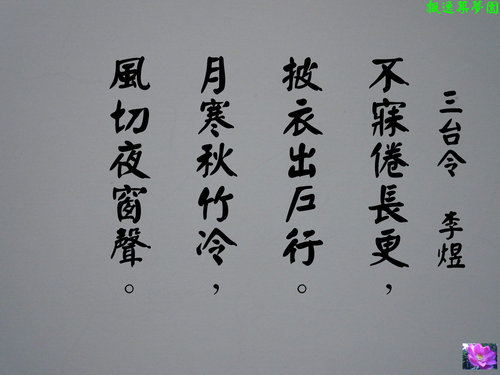 三台令 李煜
不寐倦長更，
披衣出戶行。
月寒秋竹冷，
風切夜窗聲。
築夢園